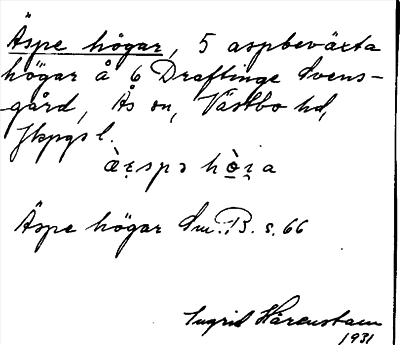 Äspe högar, 5 aspbeväxta
högar å 6 Draftinge Svens-
gård, Ås sn, Västbo hd,
Jkpgs l.
Äspe högar Sm. B. s. 66
Ingrid Härenstam
1931